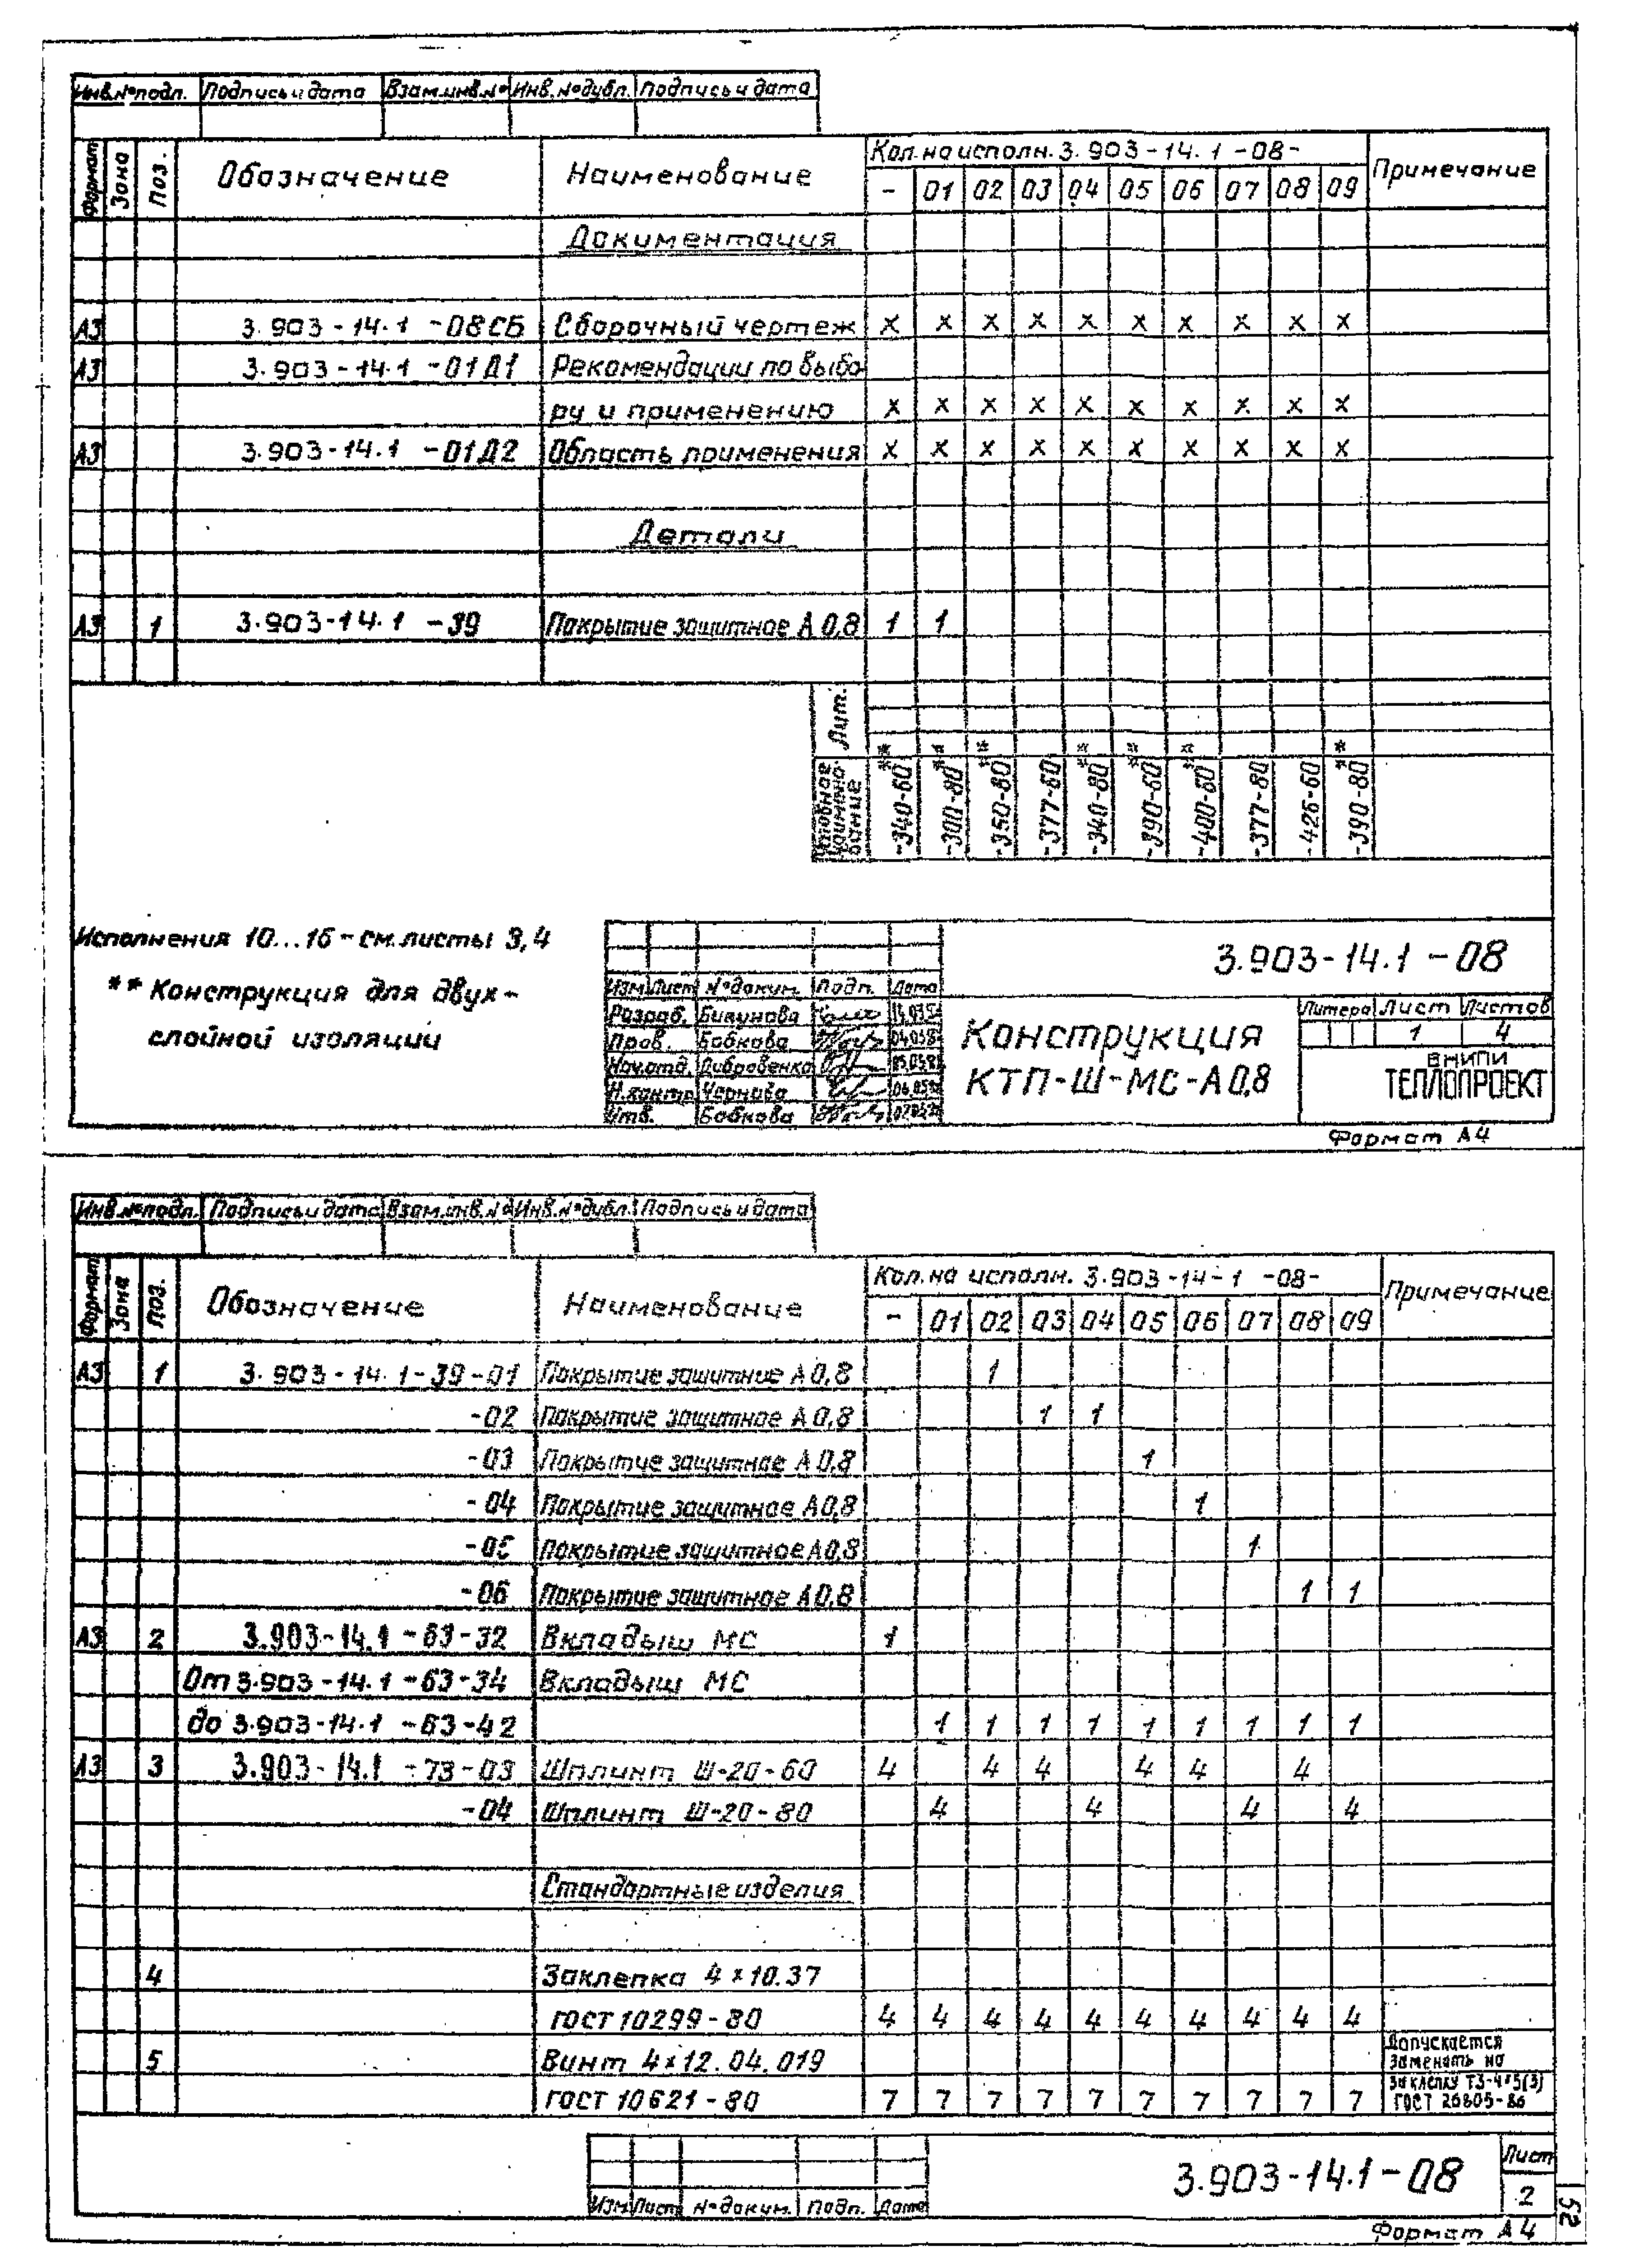 Инв.№подл. Подпись и дата Взам.инв.№ Инв.№дубл. Подпись и дата
Формат Зона Поз. Обозначение Наименование Кол. на исполн. 3.903-14.1-08- Примечание
- 01 02 03 04 05 06 07 08 09
Документация
А3 3.903-14.1-08СБ Сборочный чертеж х х х х х х х х х х
А3 3.903-14.1-01Д1 Рекомендации по выбо
ру и применению х х х х х х х х х х
А3 3.903-14.1-01Д2 Область применения х х х х х х х х х х
Детали
А3 1 3.903-14.1-39 Покрытие защитное А 0,8 1 1
Лит.
Условное наименование -340-60** -300-80** -350-80** -377-60 -340-80** -390-60** -400-60** -377-80 -426-60 -390-80**
Исполнения 10...16-см.листы 3,4
** Конструкция для двух-
слойной изоляции
3.903-14.1-08
Изм. Лист №докум. Подп. Дата
Разраб. Бивунова
Пров. Бобкова
Нач.отд.
Н.контр.
Утв. Бобкова
Конструкция
КТП-Ш-МС-А0,8
Литера Лист Листов
1 4
ВНИПИ
ТЕПЛОПРОЕКТ
Формат А4
Инв.№подл. Подпись и дата Взам.инв.№ Инв.№дубл. Подпись и дата
Формат Зона Поз. Обозначение Наименование Кол. на исполн. 3.903-14-1-08- Примечание
- 01 02 03 04 05 06 07 08 09
А3 1 3.903-14.1-39-01 Покрытие защитное А 0,8 1
-02 Покрытие защитное А 0,8 1 1
-03 Покрытие защитное А 0,8 1
-04 Покрытие защитное А 0,8 1
-05 Покрытие защитное А 0,8 1
-06 Покрытие защитное А 0,8 1 1
А3 2 3.903-14.1-63-32 Вкладыш МС 1
От 3.903-14.1-63-34 Вкладыш МС
до 3.903-14.1-63-42 1 1 1 1 1 1 1 1 1
А3 3 3.903-14.1-73-03 Шплинт Ш-20-60 4 4 4 4 4 4
-04 Шплинт Ш-20-80 4 4 4 4
Стандартные изделия
4 Заклепка 4х10.37
ГОСТ 10299-80 4 4 4 4 4 4 4 4 4 4
5 Винт 4х12.04.019 Допускается заменять на
ГОСТ 10621-80 7 7 7 7 7 7 7 7 7 7 заклепку ТЗ-4*5(3) ГОСТ 26805-86
3.903-14.1-08
Лист
2
Изм. Лист №докум. Подп. Дата
Формат А4
52